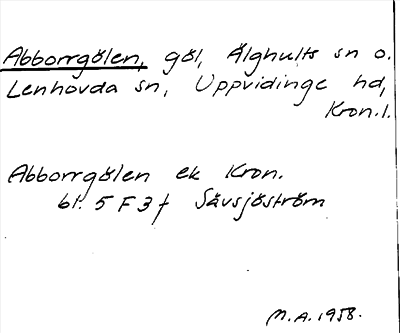 Abborrgölen, göl, Älghults sn o.
Lenhovda sn, Uppvidinge hd,
Kron.l.
Abborrgölen ek Kron.
bl. 5 F 3 f Sävsjöström
M.A. 1958.